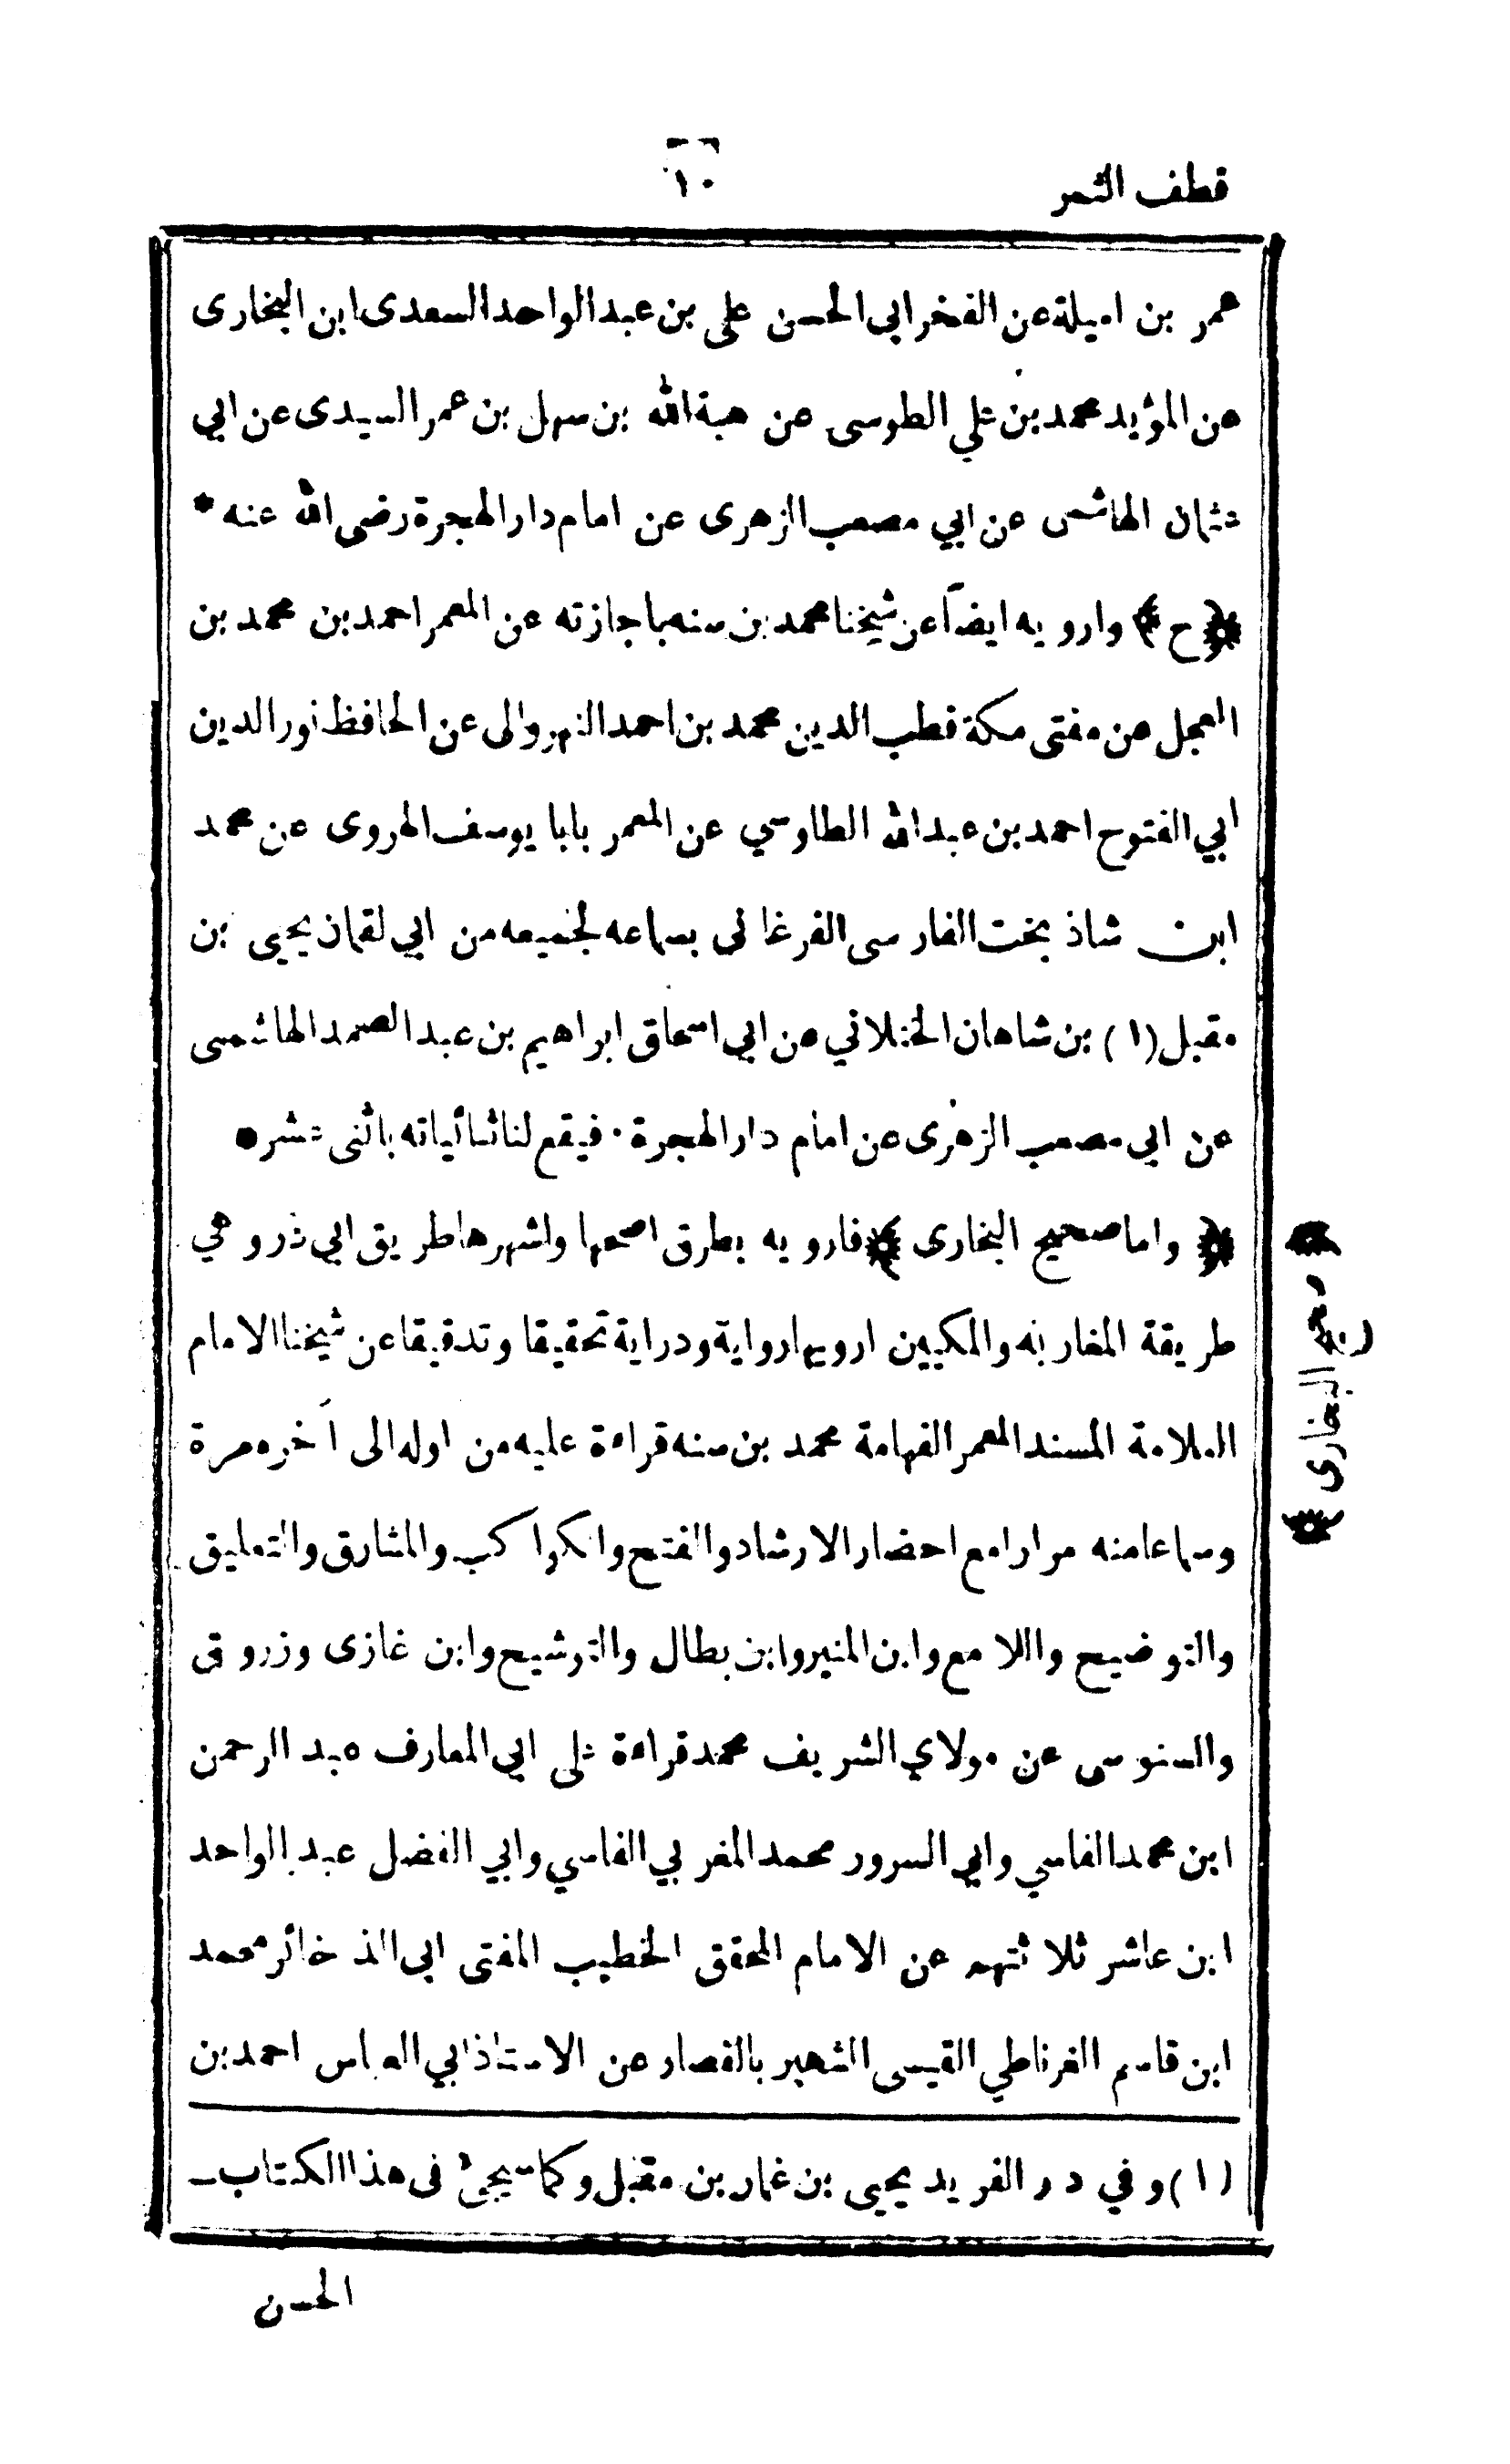 قطف الثمر
١٠
عمر بن اميلة عن الفخر ابي الحسن علي بن عبد الواحد السعدى ابن البخارى
عن المؤيد محمد بن علي الطوسى عن هبة الله بن سهل بن عمر السيدى عن ابي
عثمان الهاشمى عن ابي مصعب الزهرى عن امام دار الهجرة رضى الله عنه *
﴿ ح ﴾ وارويه ايضاً عن شيخنا محمد بن سنه باجازته عن المعمر احمد بن محمد بن
العجل عن مفتى مكة قطب الدين محمد بن احمد النهروالى عن الحافظ نور الدين
ابي الفتوح احمد بن عبد الله الطاوسي عن المعمر بابا يوسف الهروى عن محمد
ابن شاذ بخت الفارسى الفرغانى بسماعه لجميعه من ابي لقمان يحيى بن
مقبل (١) بن شاهان الختلاني عن ابي اسحاق ابراهيم بن عبد الصمد الهاشمى
عن ابى مصعب الزهرى عن امام دار الهجرة · فيقع لنا ثنائياته باثنى عشر ●
﴿ واما صحيح البخارى ﴾ فارويه بطرق اصحها واشهرها طريق ابي ذر وهي
طريقة المغاربه والمكيين ارويها رواية ودراية تحقيقا وتدقيقا عن شيخنا الامام
العلامة المسند المعمر الفهامة محمد بن سنه قراءة عليه من اوله الى آخره مرة
وسماعا منه مرارا مع احضار الارشاد والفتح والكواكب والمشارق والتعليق
والتوضيح واللامع وابن المنير وابن بطال والترشيح وابن غازى وزروق
والسنوسى عن مولاي الشريف محمد قراءة على ابي المعارف عبد الرحمن
ابن محمد الفاسي وابي السرور محمد المغربي الفاسي وابي الفضل عبد الواحد
ابن عاشر ثلاثتهم عن الامام المحقق الخطيب المفتى ابى الذخائر محمد
ابن قاسم الغرناطي القيسى الشهير بالقصار عن الاستاذ ابي العباس احمد بن
(١) وفي در الفريد يحيى بن عمار بن مقبل وكما سيجئ فى هذا الكتاب
الحسن
﴿ صحيح البخارى ﴾